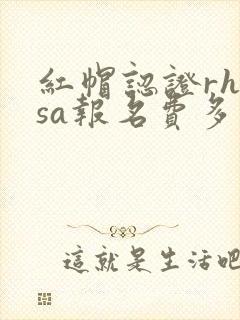 紅帽認證rh
sa報名費多
這就是生活吧